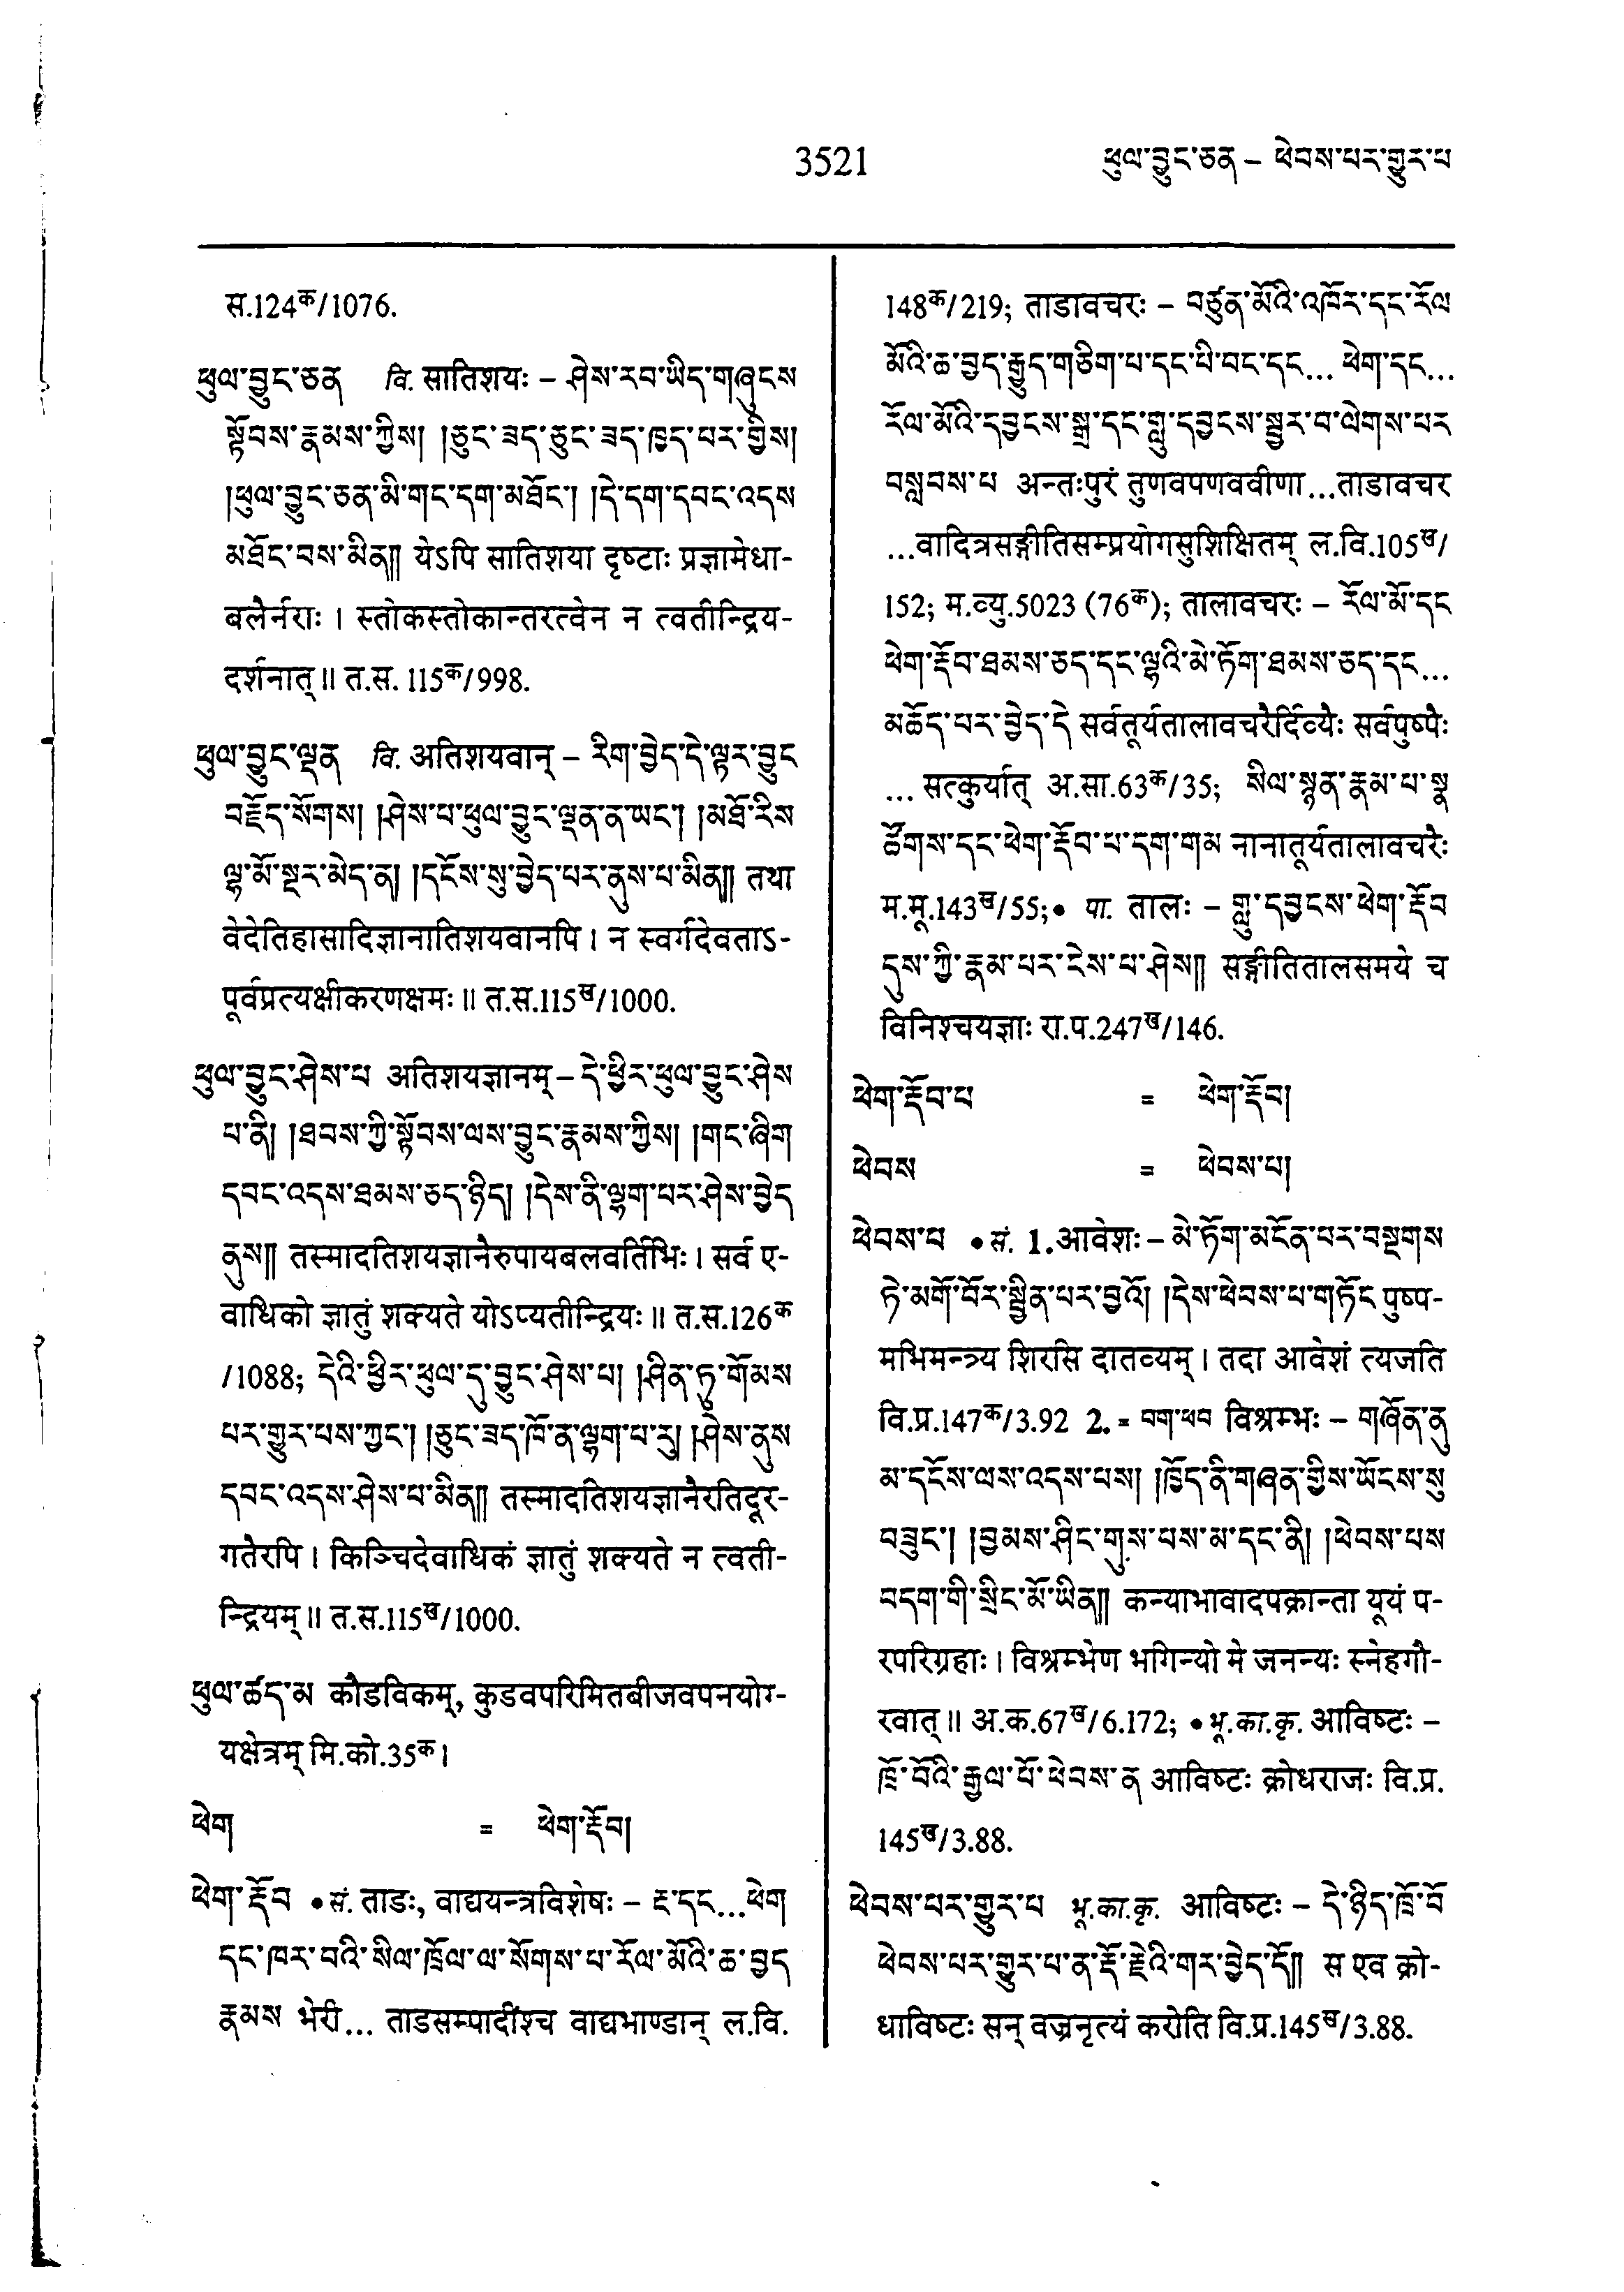 3521
ཕུལ་བྱུང་ཅན – ཕེབས་པར་གྱུར་པ
स.124क/1076.
ཕུལ་བྱུང་ཅན वि. सातिशयः – ཤེས་རབ་ཡིད་གཞུངས
སྟོབས་རྣམས་ཀྱིས། །ཅུང་ཟད་ཅུང་ཟད་ཁྱད་པར་གྱིས།
།ཕུལ་བྱུང་ཅན་མི་གང་དག་མཐོང༌། །དེ་དག་དབང་འདས
མཐོང་བས་མིན༎ येऽपि सातिशया दृष्टाः प्रज्ञामेधा-
बलैर्नराः । स्तोकस्तोकान्तरत्वेन न त्वतीन्द्रिय-
दर्शनात् ॥ त.स. 115क/998.
ཕུལ་བྱུང་ལྡན वि. अतिशयवान् – རིག་བྱེད་དེ་ལྟར་བྱུང
བརྗོད་སོགས། །ཤེས་པ་ཕུལ་བྱུང་ལྡན་ན་ཡང༌། །མཐོ་རིས
ལྷ་མོ་སྔར་མེད་ན། །དངོས་སུ་བྱེད་པར་ནུས་པ་མིན༎ तथा
वेदेतिहासादिज्ञानातिशयवानपि । न स्वर्गदेवताऽ-
पूर्वप्रत्यक्षीकरणक्षमः ॥ त.स.115ख/1000.
ཕུལ་བྱུང་ཤེས་པ अतिशयज्ञानम् – དེ་ཕྱིར་ཕུལ་བྱུང་ཤེས
པ་ནི། །ཐབས་ཀྱི་སྟོབས་ལས་བྱུང་རྣམས་ཀྱིས། །གང་ཞིག
དབང་འདས་ཐམས་ཅད་ཉིད། །དེས་ནི་ལྷག་པར་ཤེས་བྱེད
ནུས༎ तस्मादतिशयज्ञानैरुपायबलवर्तिभिः । सर्व ए-
वाधिको ज्ञातुं शक्यते योऽप्यतीन्द्रियः ॥ त.स.126क
/1088; དེའི་ཕྱིར་ཕུལ་དུ་བྱུང་ཤེས་པ། །ཤིན་ཏུ་གོམས
པར་གྱུར་པས་ཀྱང༌། །ཅུང་ཟད་ཁོ་ན་ལྷག་པ་རུ། །ཤེས་ནུས
དབང་འདས་ཤེས་པ་མིན༎ तस्मादतिशयज्ञानैरतिदूर-
गतैरपि । किञ्चिदेवाधिकं ज्ञातुं शक्यते न त्वती-
न्द्रियम् ॥ त.स.115ख/1000.
ཕུལ་ཚད་མ कौडविकम्, कुडवपरिमितबीजवपनयोग्-
यक्षेत्रम् मि.को.35क।
ཕེག = ཕེག་རྡོབ།
ཕེག་རྡོབ • सं. ताडः, वाद्ययन्त्रविशेषः – རྔ་དང...ཕེག
དང་ཁར་བའི་སིལ་ཁྲོལ་ལ་སོགས་པ་རོལ་མོའི་ཆ་བྱད
རྣམས भेरी... ताडसम्पादींश्च वाद्यभाण्डान् ल.वि.
148क/219; ताडावचरः – བཙུན་མོའི་འཁོར་དང་རོལ
མོའི་ཆ་བྱད་རྒྱུད་གཅིག་པ་དང་པི་བང་དང... ཕེག་དང...
རོལ་མོའི་དབྱངས་སྒྲ་དང་གླུ་དབྱངས་སྦྱར་བ་ལེགས་པར
བསླབས་པ अन्तःपुरं तुणवपणववीणा...ताडावचर
...वादित्रसङ्गीतिसम्प्रयोगसुशिक्षितम् ल.वि.105ख/
152; म.व्यु.5023 (76क); तालावचरः – རོལ་མོ་དང
ཕེག་རྡོབ་ཐམས་ཅད་དང་ལྷའི་མེ་ཏོག་ཐམས་ཅད་དང...
མཆོད་པར་བྱེད་དེ सर्वतूर्यतालावचरैर्दिव्यैः सर्वपुष्पैः
... सत्कुर्यात् अ.सा.63क/35; སིལ་སྙན་རྣམ་པ་སྣ
ཚོགས་དང་ཕེག་རྡོབ་པ་དག་གམ नानातूर्यतालावचरैः
म.मू.143ख/55;• पा. तालः – གླུ་དབྱངས་ཕེག་རྡོབ
དུས་ཀྱི་རྣམ་པར་ངེས་པ་ཤེས༎ सङ्गीतितालसमये च
विनिश्चयज्ञाः रा.प.247ख/146.
ཕེག་རྡོབ་པ = ཕེག་རྡོབ།
ཕེབས = ཕེབས་པ།
ཕེབས་པ • सं. 1.आवेशः – མེ་ཏོག་མངོན་པར་བསྔགས
ཏེ་མགོ་བོར་སྦྱིན་པར་བྱའོ། །དེས་ཕེབས་པ་གཏོང पुष्प-
मभिमन्त्र्य शिरसि दातव्यम् । तदा आवेशं त्यजति
वि.प्र.147क/3.92 2. = བག་ཕབ विश्रम्भः – གཞོན་ནུ
མ་དངོས་ལས་འདས་པས། །ཁྱོད་ནི་གཞན་གྱིས་ཡོངས་སུ
བཟུང༌། །བྱམས་ཤིང་གུས་པས་མ་དང་ནི། །ཕེབས་པས
བདག་གི་སྲིང་མོ་ཡིན༎ कन्याभावादपक्रान्ता यूयं प-
रपरिग्रहाः । विश्रम्भेण भगिन्यो मे जनन्यः स्नेहगौ-
रवात् ॥ अ.क.67ख/6.172; • भू.का.कृ. आविष्टः –
ཁྲོ་བོའི་རྒྱལ་པོ་ཕེབས་ན आविष्टः क्रोधराजः वि.प्र.
145ख/3.88.
ཕེབས་པར་གྱུར་པ भू.का.कृ. आविष्टः – དེ་ཉིད་ཁྲོ་བོ
ཕེབས་པར་གྱུར་པ་ན་རྡོ་རྗེའི་གར་བྱེད་དོ༎ स एव क्रो-
धाविष्टः सन् वज्रनृत्यं करोति वि.प्र.145ख/3.88.